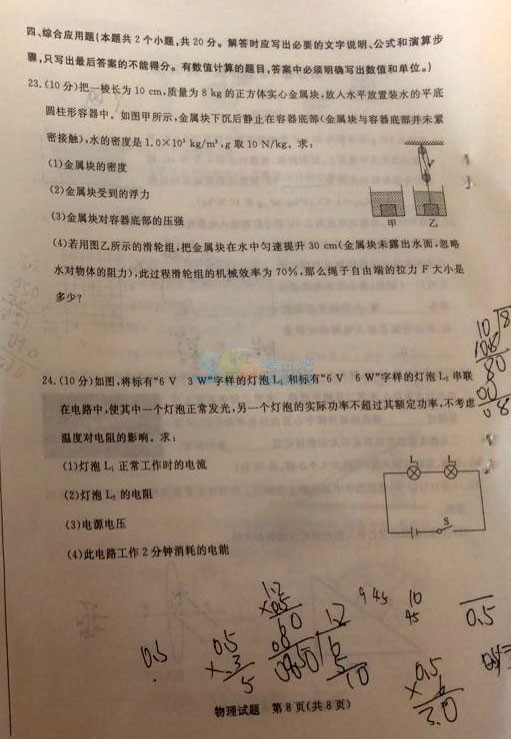 四、综合应用题(本题共2个小题,共20分。解答时应写出必要的文字说明、公式和演算步
骤,只写出最后答案的不能得分。有数值计算的题目,答案中必须明确写出数值和单位。)
23.(10分)把一棱长为10 cm,质量为8 kg的正方体实心金属块,放入水平放置装水的平底
圆柱形容器中。如图甲所示,金属块下沉后静止在容器底部(金属块与容器底部并未紧
密接触),水的密度是1.0×10³ kg/m³,g取10 N/kg。求:
(1)金属块的密度
(2)金属块受到的浮力
(3)金属块对容器底部的压强
甲 乙
(4)若用图乙所示的滑轮组,把金属块在水中匀速提升30 cm(金属块未露出水面,忽略
水对物体的阻力),此过程滑轮组的机械效率为70%,那么绳子自由端的拉力F大小是
多少?
24.(10分)如图,将标有“6 V 3 W”字样的灯泡L₁和标有“6 V 6 W”字样的灯泡L₂串联
在电路中,使其中一个灯泡正常发光,另一个灯泡的实际功率不超过其额定功率,不考虑
温度对电阻的影响。求:
(1)灯泡L₁正常工作时的电流
(2)灯泡L₂的电阻
(3)电源电压
(4)此电路工作2分钟消耗的电能
L₁ L₂
S
0.5
物理试题 第8页(共8页)